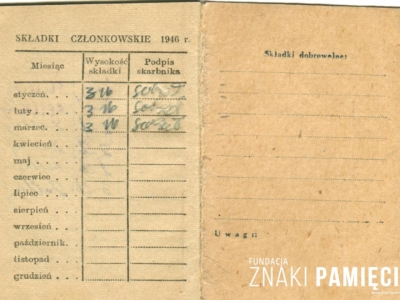 SKŁADKI CZŁONKOWSKIE 1946 r.
Miesiąc Wysokość składki Podpis skarbnika
styczeń. . . . 3
luty . . . . 3
marzec. . . . 3
kwiecień . . .
maj . . . .
czerwiec . . .
lipiec . . . .
sierpień . . .
wrzesień . . .
październik.
listopad . . .
grudzień . . .
Składki dobrowolne:
Uwagi:
FUNDACJA
ZNAKI PAMIĘCI